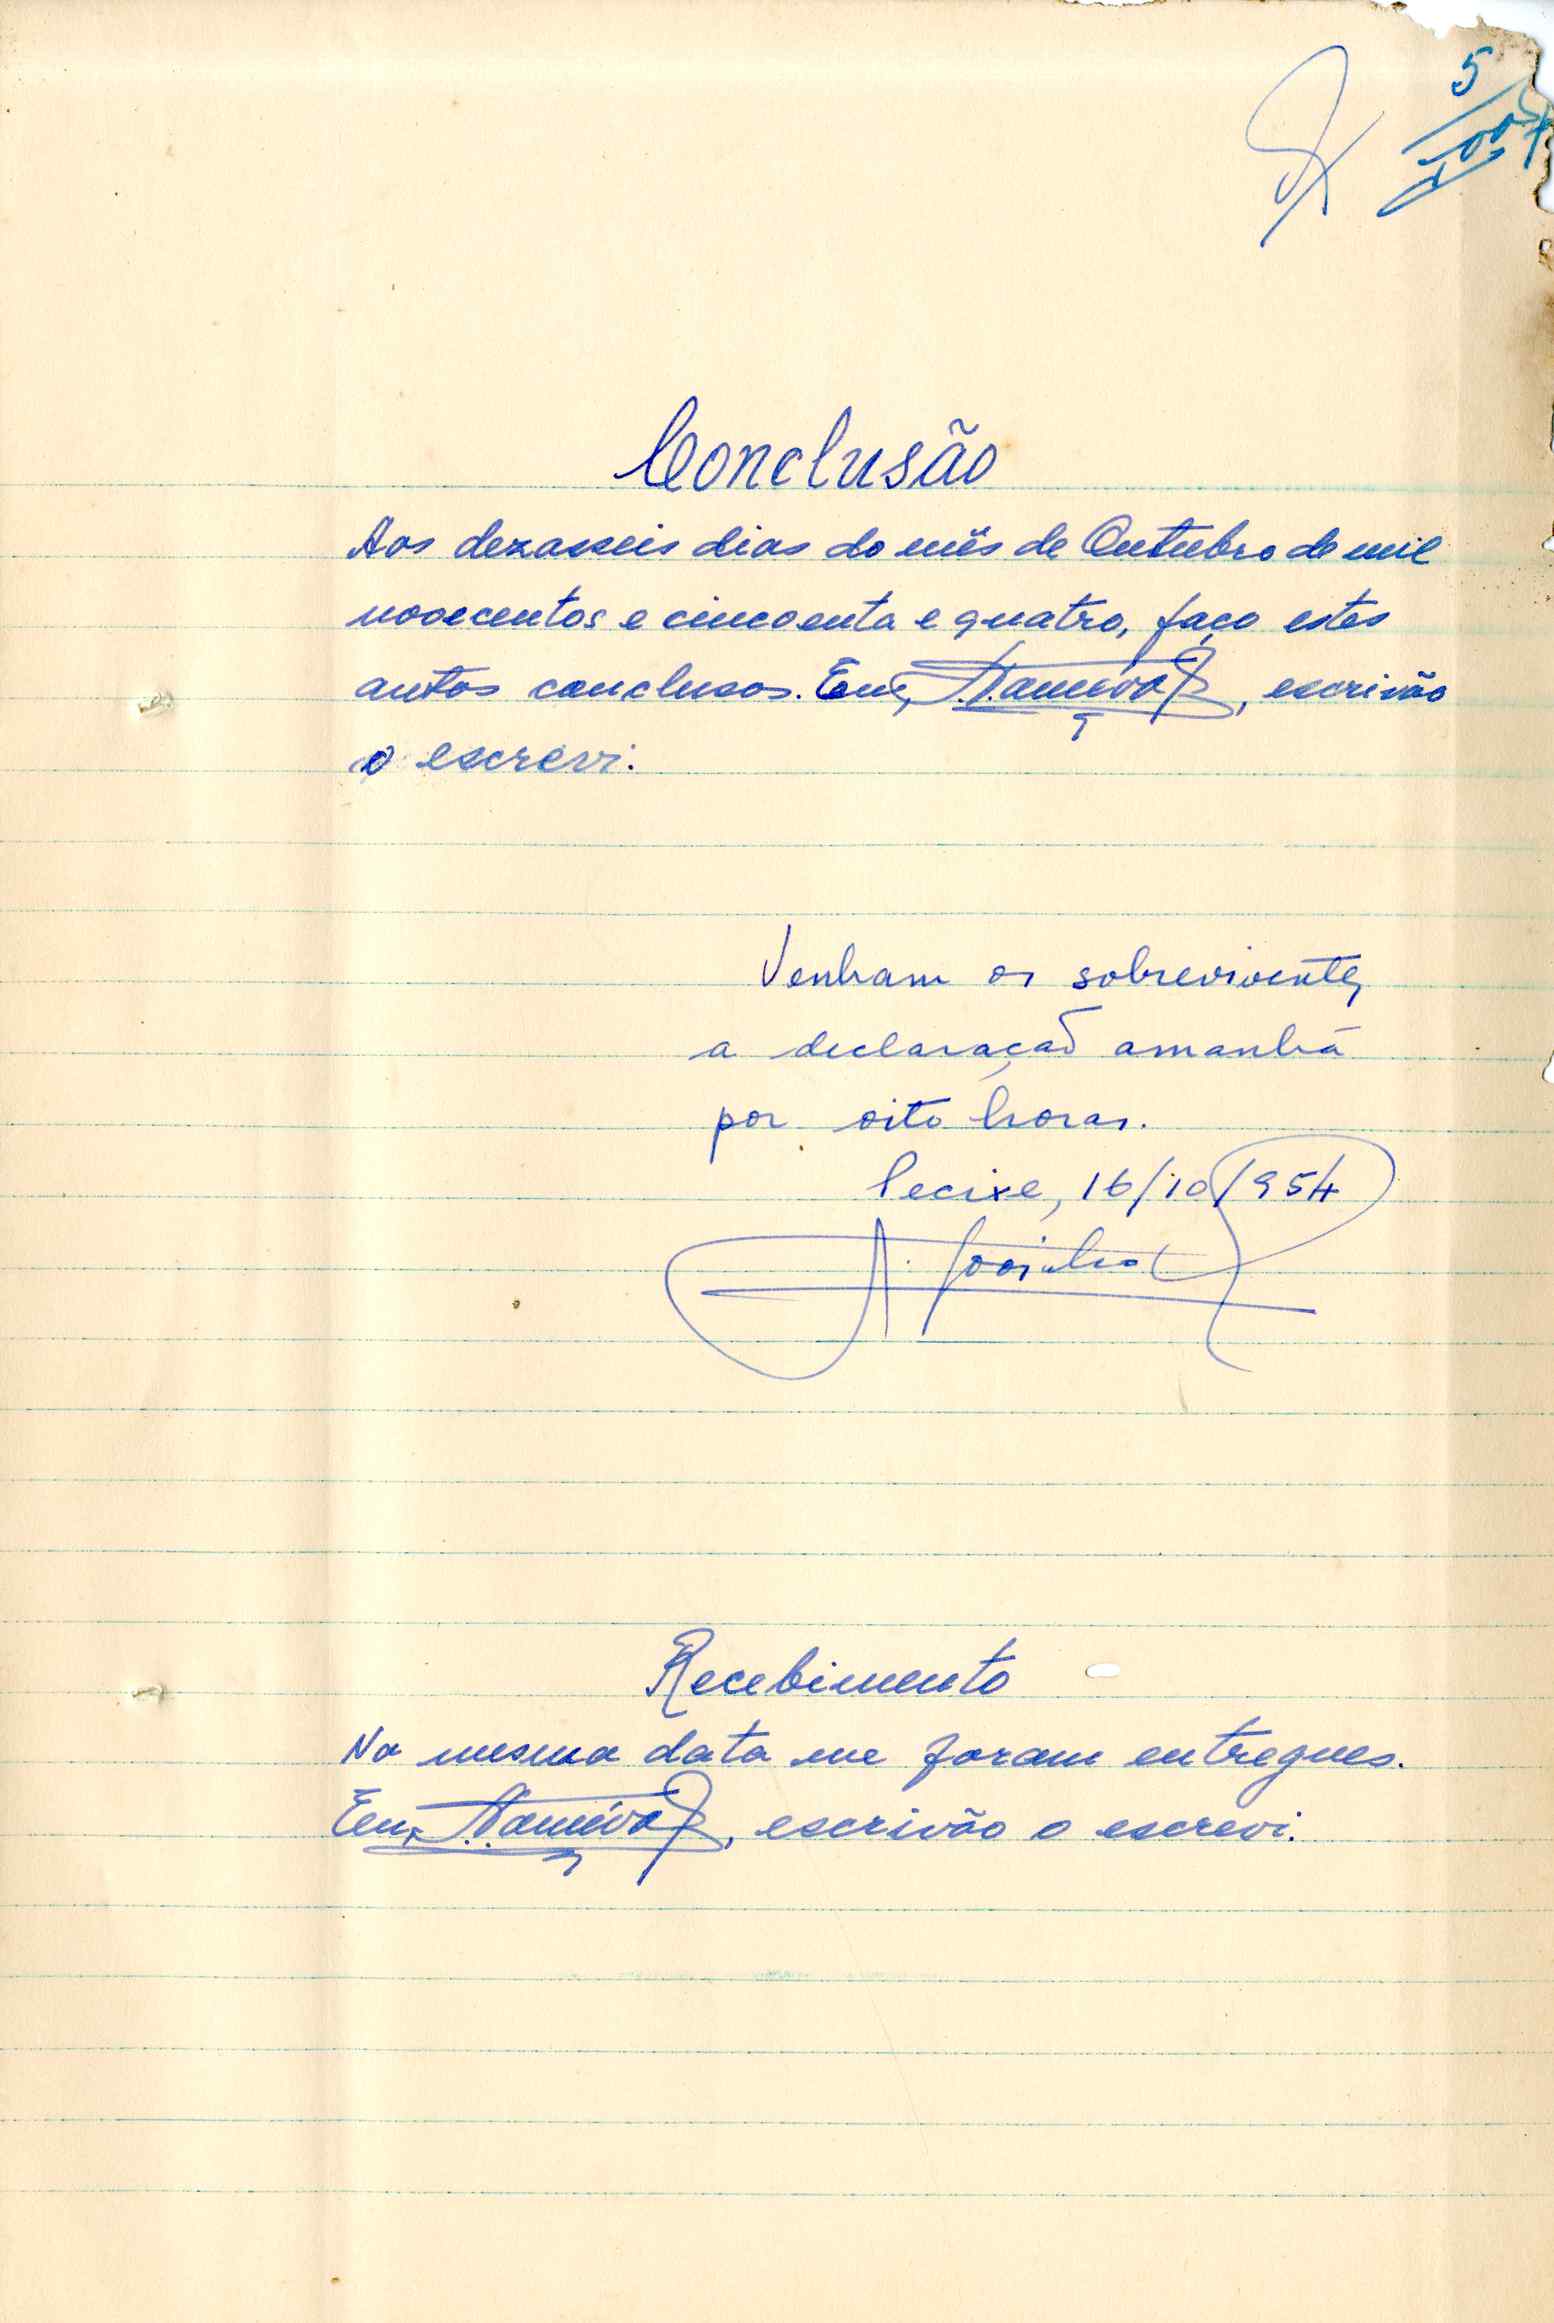 5
Conclusão
Aos dezasseis dias do mês de Outubro de mil
novecentos e cincoenta e quatro, faço estes
autos conclusos. Eu, , escrivão
o escrevi.
Venham os sobreviventes
a declaração amanhã
por oito horas.
Pecixe, 16/10/954
Recebimento
Na mesma data me foram entregues.
Eu, , escrivão o escrevi.